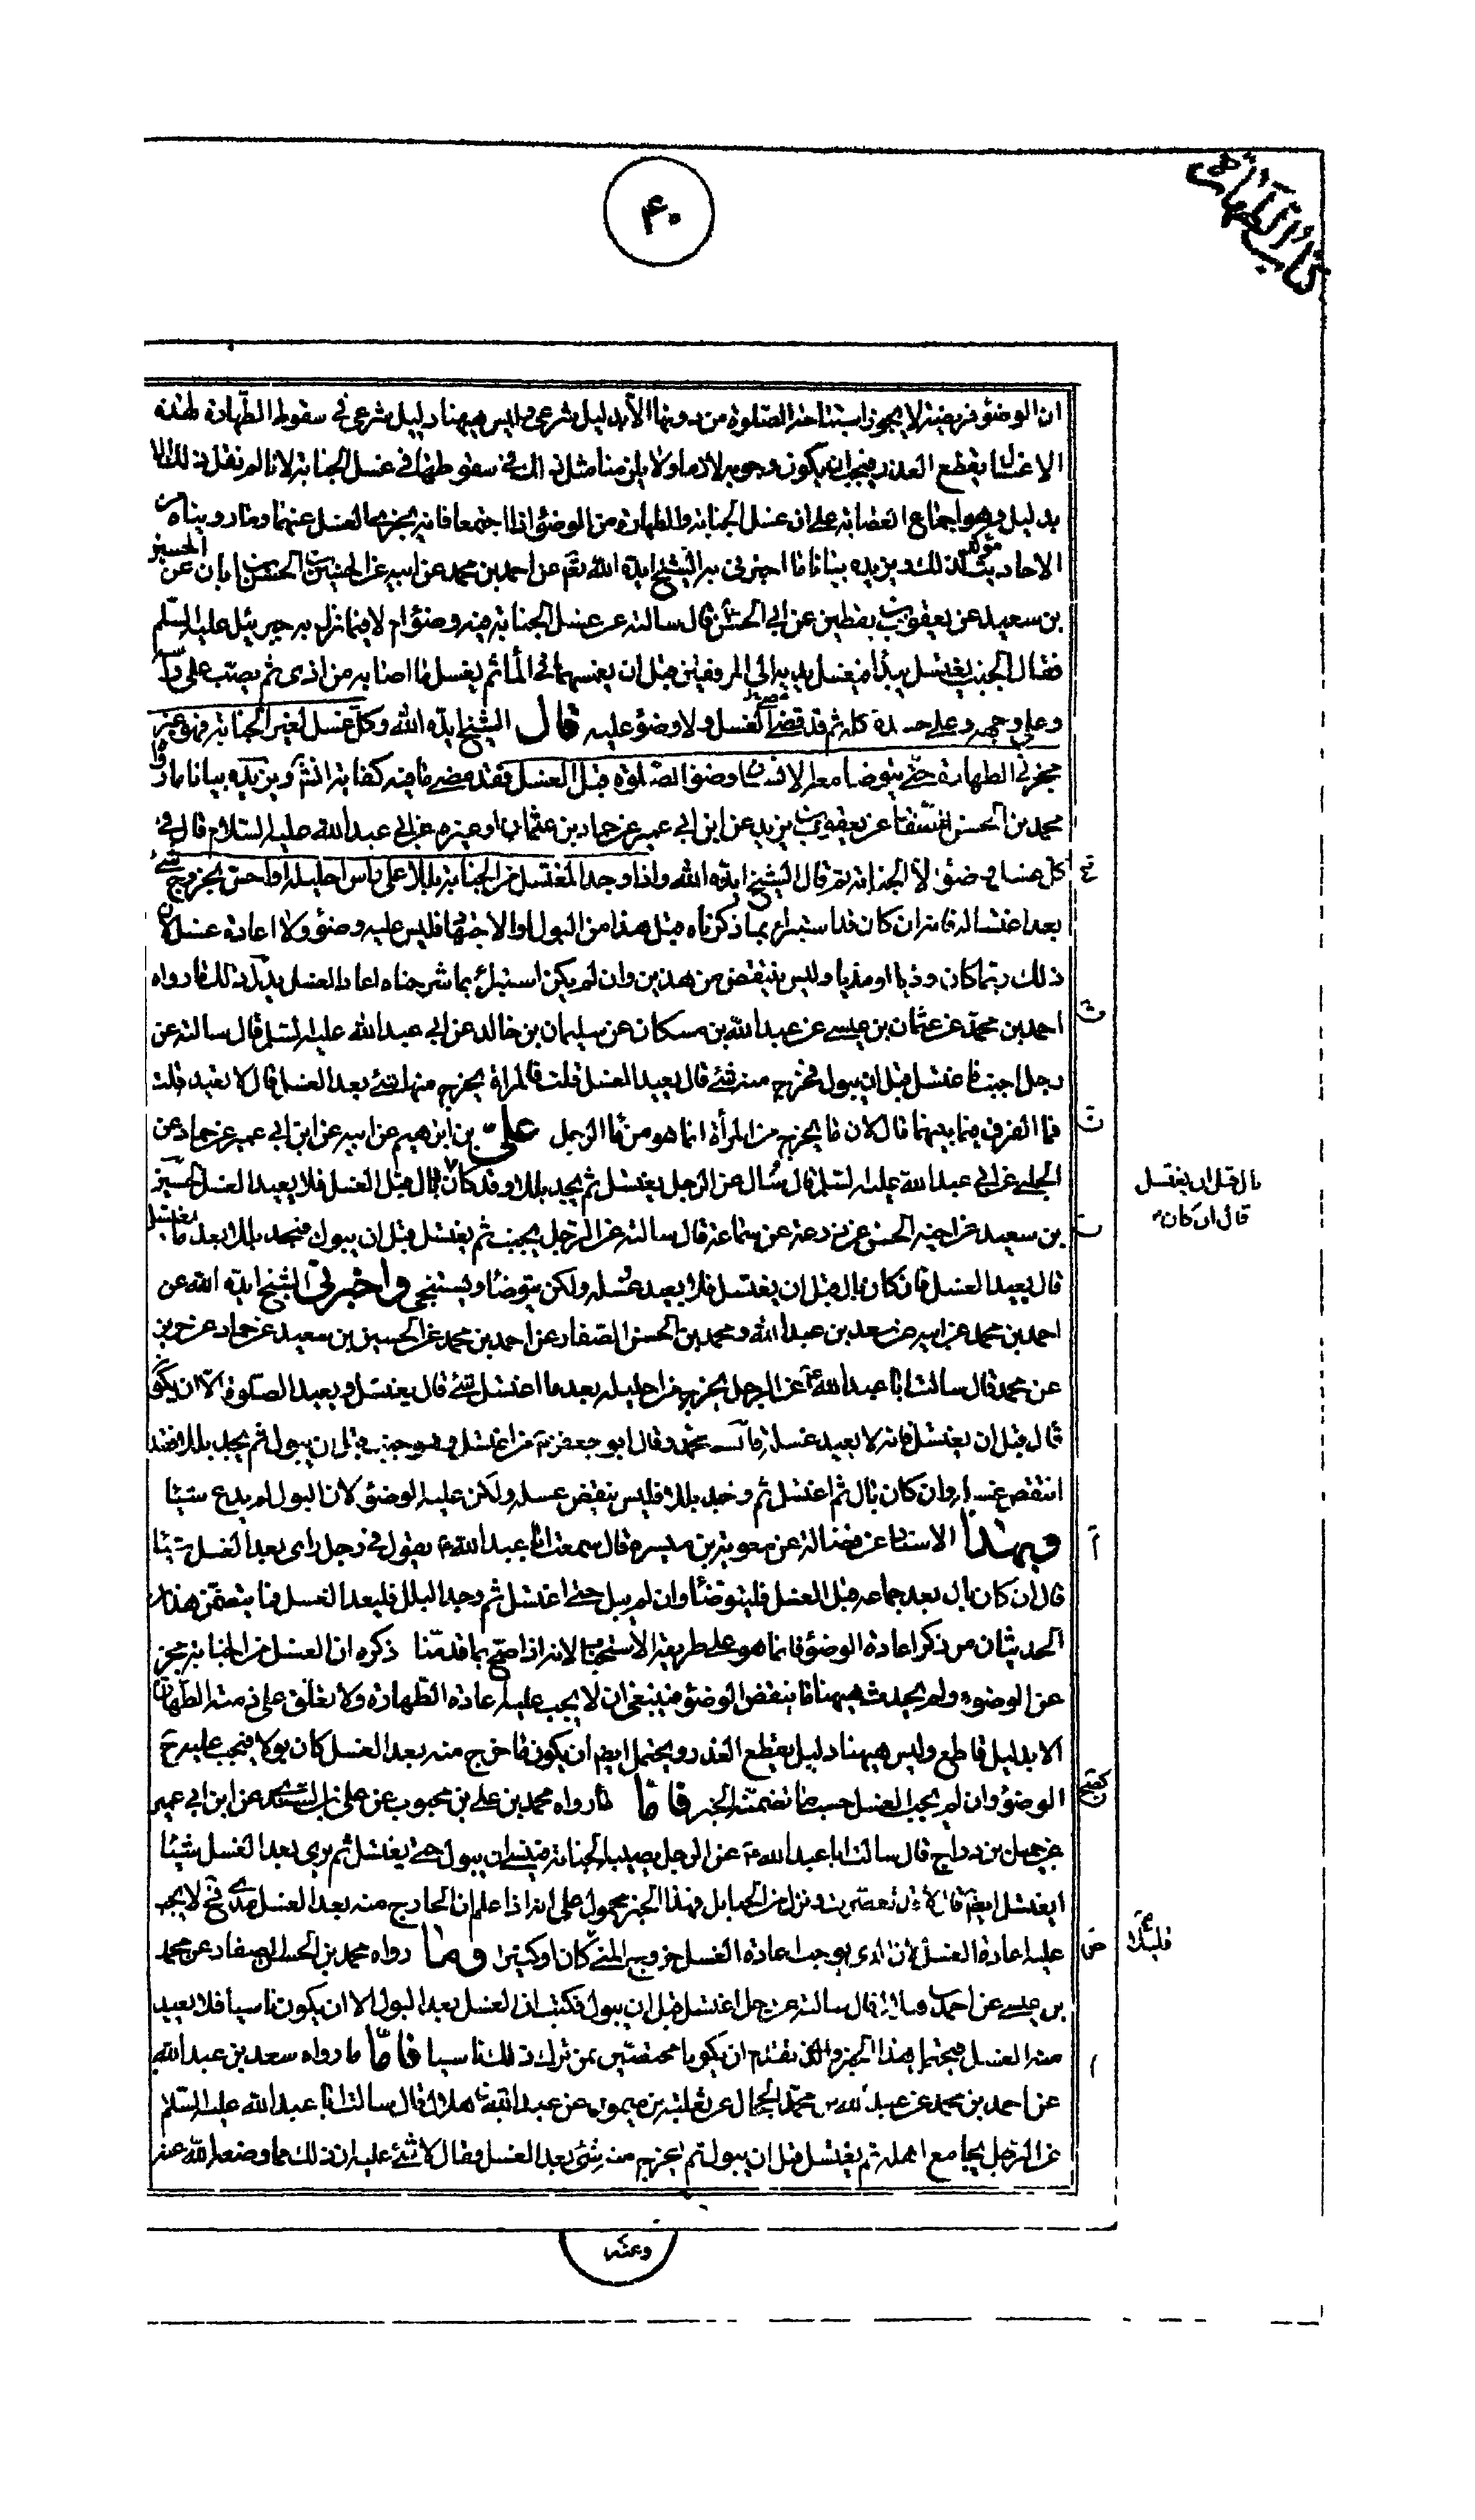 كتاب الطهارة
۴۰
ان الوضوء فريضة لا يجوز استباحة الصلوة من دونها الا بدليل شرعي وليس هيهنا دليل شرعي في سقوط الطهارة لهذه
الاغسال يقطع العذر فيجب ان يكون وجوبه لازما ولا يلزمنا مثل ذلك في سقوطها في غسل الجنابة لانا لم نقل ذلك الا
بدليل وهو اجماع العصابة على ان غسل الجنابة والطهارة من الوضوء اذا اجتمعا فانه يجزيهما الغسل عنهما وما رويناه من
الاحاديث مؤكد لذلك ويزيده بيانا ما اخبرني به الشيخ ايده الله تع عن احمد بن محمد عن ابيه عن الحسين بن الحسن بن ابان عن الحسين
بن سعيد عن يعقوب بن يقطين عن ابي الحسن قال سالته عن غسل الجنابة فيه وضوء ام لا فيما نزل به جبرئيل عليه السلم
فقال الجنب يغتسل يبدأ فيغسل يديه الى المرفقين قبل ان يغمسهما في الماء ثم يغسل ما اصابه من اذى ثم يصب على راسه
وعلى وجهه وعلى جسده كله ثم قد قضى الغسل ولا وضوء عليه قال الشيخ ايده الله وكل غسل لغير الجنابة فهو غير
مجز في الطهارة حتى يتوضا معه الانسان وضوء الصلوة قبل الغسل فقد مضى ما فيه كفاية انش ويزيده بيانا ما رواه
محمد بن الحسن الصفار عن يعقوب بن يزيد عن ابن ابي عمير عن حماد بن عثمان او غيره عن ابي عبد الله عليه السلام قال في
كل غسل وضوء الا الجنابة ثم قال الشيخ ايده الله واذا وجد المغتسل من الجنابة بللا على راس احليله او احس بخروج شئ
بعد اغتساله فانه ان كان قد استبرا بما ذكرناه قبل هذا من البول او الاجتهاد فليس عليه وضوء ولا اعادة غسل لان
ذلك ربما كان وذيا او مذيا وليس ينتقض من هذين وان لم يكن استبرئ بما شرحناه اعاد الغسل يدل ذلك ما رواه
احمد بن محمد عن عثمان بن عيسى عن عبد الله بن مسكان عن سليمان بن خالد عن ابي عبد الله عليه السلم قال سالته عن
رجل اجنب فاغتسل قبل ان يبول فخرج منه شئ قال يعيد الغسل قلت فالمراة يخرج منها شئ بعد الغسل قال لا يعيد قلت
فما الفرق فيما بينهما قال لان ما يخرج من المرأة انما هو من ماء الرجل علي بن ابرهيم عن ابيه عن ابن ابي عمير عن حماد عن
الحلبي عن ابي عبد الله عليه السلم قال سُال عن الرجل يغتسل ثم يجد بللا وقد كان بال قبل الغسل فلا يعيد الغسل الحسين
بال قبل ان يغتسل
قال ان كان
بن سعيد عن اخيه الحسن عن زرعة عن سماعة قال سالته عن الرجل يجنب ثم يغتسل قبل ان يبول فيجد بللا بعد ما يغتسل
قال يعيد الغسل فان كان بال قبل ان يغتسل فلا يعيد غسله ولكن يتوضأ ويستنجي واخبرني الشيخ ايده الله عن
احمد بن محمد عن ابيه عن سعد بن عبد الله ومحمد بن الحسن الصفار عن احمد بن محمد عن الحسين بن سعيد عن حماد عن حريز
عن محمد قال سالت ابا عبد الله ع عن الرجل يخرج من احليله بعد ما اغتسل شئ قال يغتسل ويعيد الصلوة الا ان يكون
بال قبل ان يغتسل فانه لا يعيد غسله قال محمد وقال ابو جعفر ع من اغتسل وهو جنب قبل ان يبول ثم يجد بللا فقد
انتقض غسله وان كان بال ثم اغتسل ثم وجد بللا فليس ينقض غسله ولكن عليه الوضوء لان البول لم يدع شيئا
وبهذا الاسناد عن فضالة عن معوية بن ميسرة قال سمعت ابا عبد الله ع يقول في رجل راى بعد الغسل شيئا
قال ان كان بال بعد جماعه قبل الغسل فليتوضأ وان لم يبل حتى اغتسل ثم وجد البلل فليعد الغسل فما يتضمن هذان
الحديثان من ذكر اعادة الوضوء فانما هو على طريقة الاستحباب لانه اذا صح بما قدمنا ذكره ان الغسل من الجنابة مجز
عن الوضوء ولم يحدث هيهنا ما ينقض الوضوء فينبغي ان لا يجب عليه اعادة الطهارة ولا تعلق على ذمته الطهارة
الا بدليل قاطع وليس هيهنا دليل يقطع العذر ويحتمل ايضا ان يكون ما خرج منه بعد الغسل كان بولا فيجب عليه ح
الوضوء وان لم يجب الغسل حسب ما تضمنه الخبر فاما ما رواه محمد بن علي بن محبوب عن علي بن السندي عن ابن ابي عمير
عن جميل بن دراج قال سالت ابا عبد الله ع عن الرجل يصيبه الجنابة فينسى ان يبول حتى يغتسل ثم يرى بعد الغسل شيئا
ايغتسل ايضا قال لا قد تعصرت ونزل من الحبايل فهذا الخبر محمول على انه اذا علم ان الخارج منه بعد الغسل مذي فح لا يجب
عليه اعادة الغسل لان الذي يوجب اعادة الغسل خروج المني كان او كثيرا وما رواه محمد بن الحسن الصفار عن محمد
قليلا
بن عيسى عن احمد بن هلال قال سالته عن رجل اغتسل قبل ان يبول فكتب ان الغسل بعد البول الا ان يكون ناسيا فلا يعيد
منه الغسل فيحتمل هذا الخبر والذي تقدم ان يكونا مختصين بمن ترك ذلك ناسيا فاما ما رواه سعد بن عبد الله
عن احمد بن محمد عن عبد الله بن محمد الحجال عن ثعلبة بن ميمون عن عبد الله بن هلال قال سالت ابا عبد الله عليه السلام
عن الرجل يجامع اهله ثم يغتسل قبل ان يبول ثم يخرج منه شئ بعد الغسل فقال لا شئ عليه ان ذلك مما وضعه الله عنه
وعنه